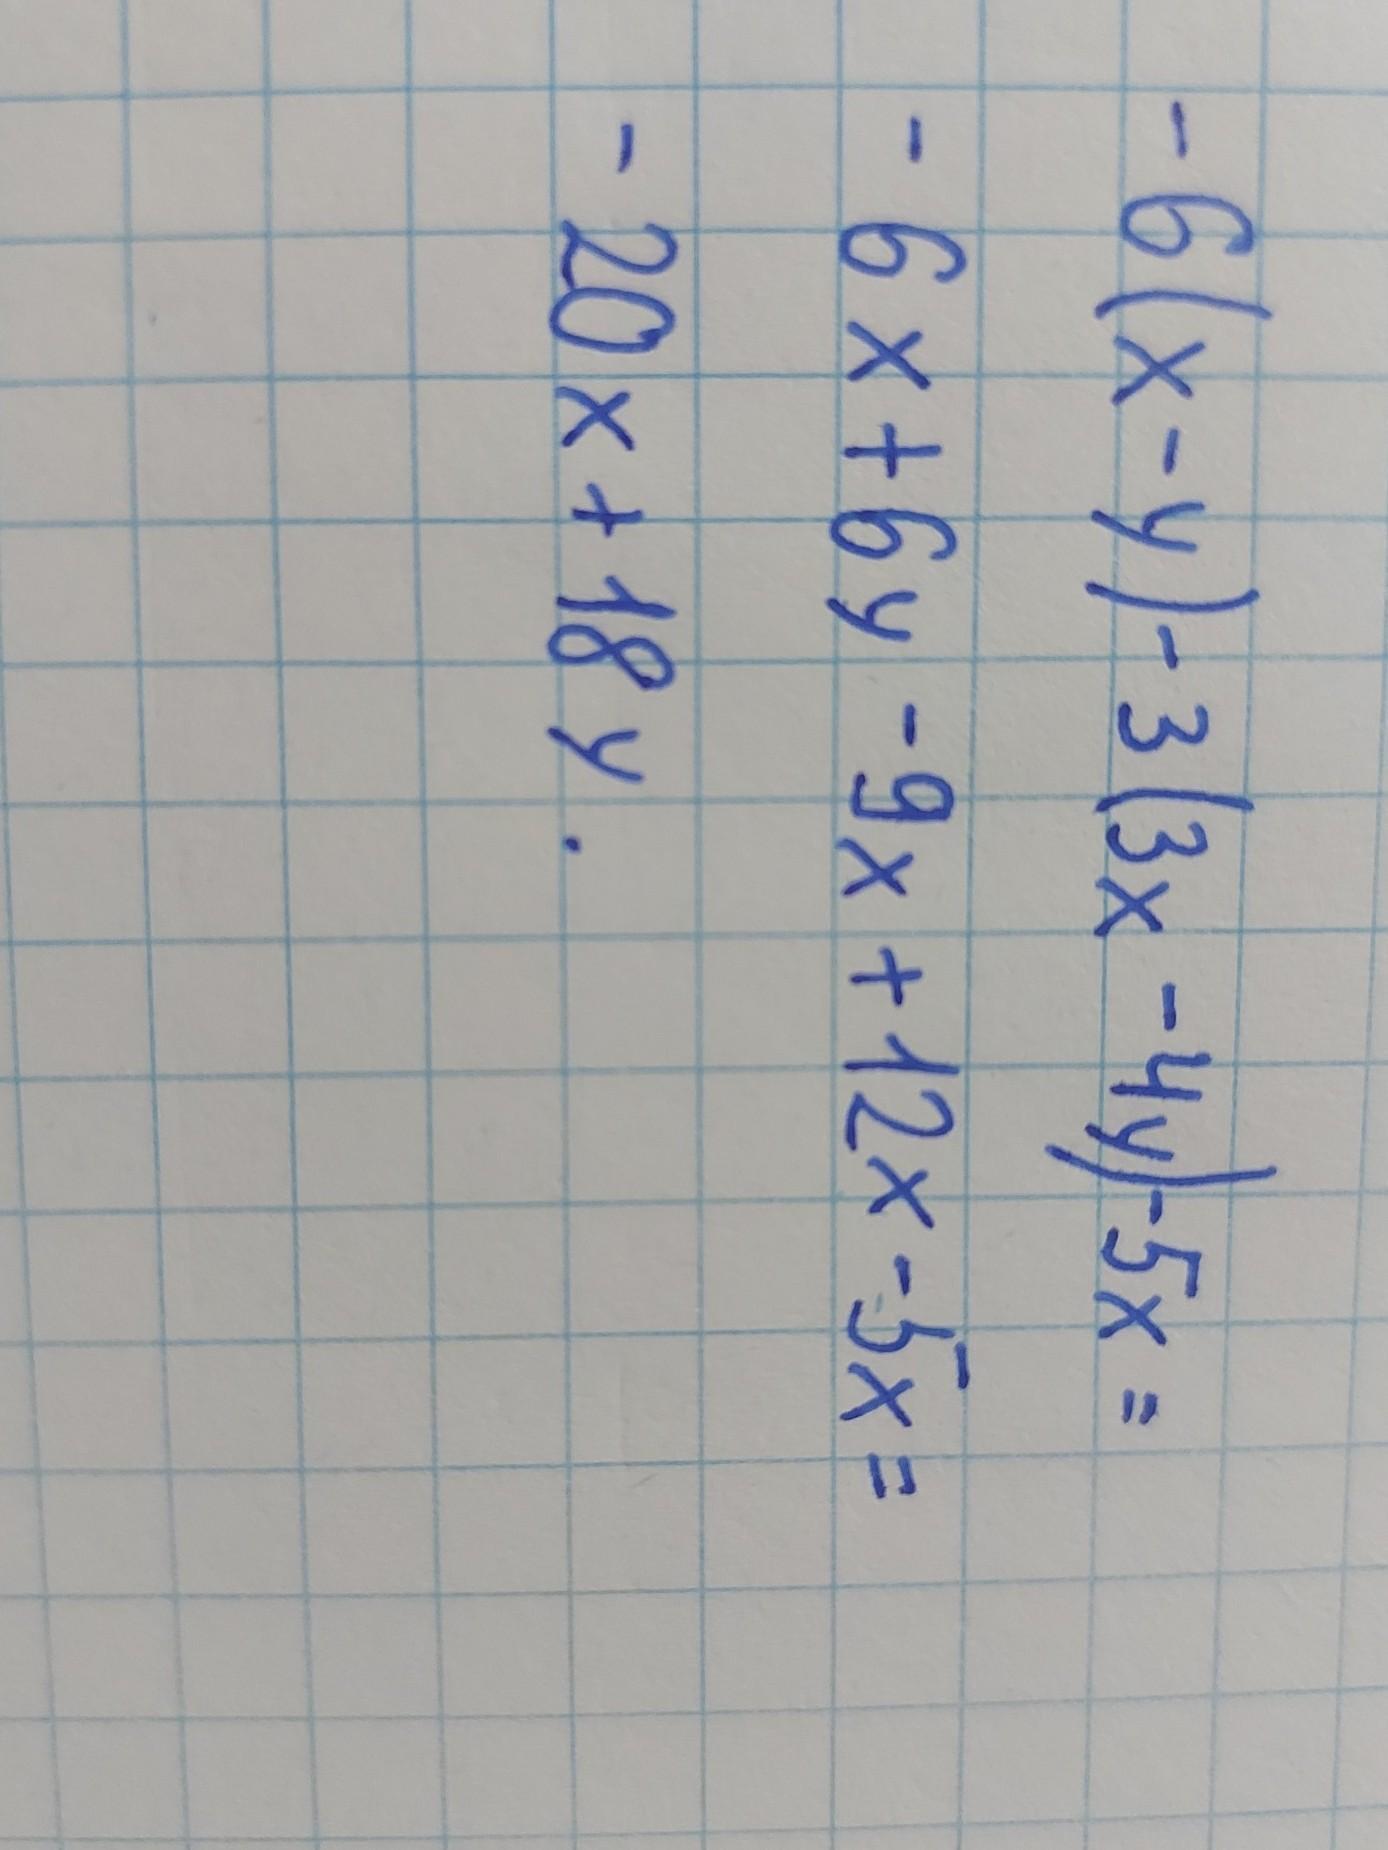 - 6(x-y)-3(3x-4y)-5x=
- 6x+6y-9x+12x-5x=
- 20x+18y.